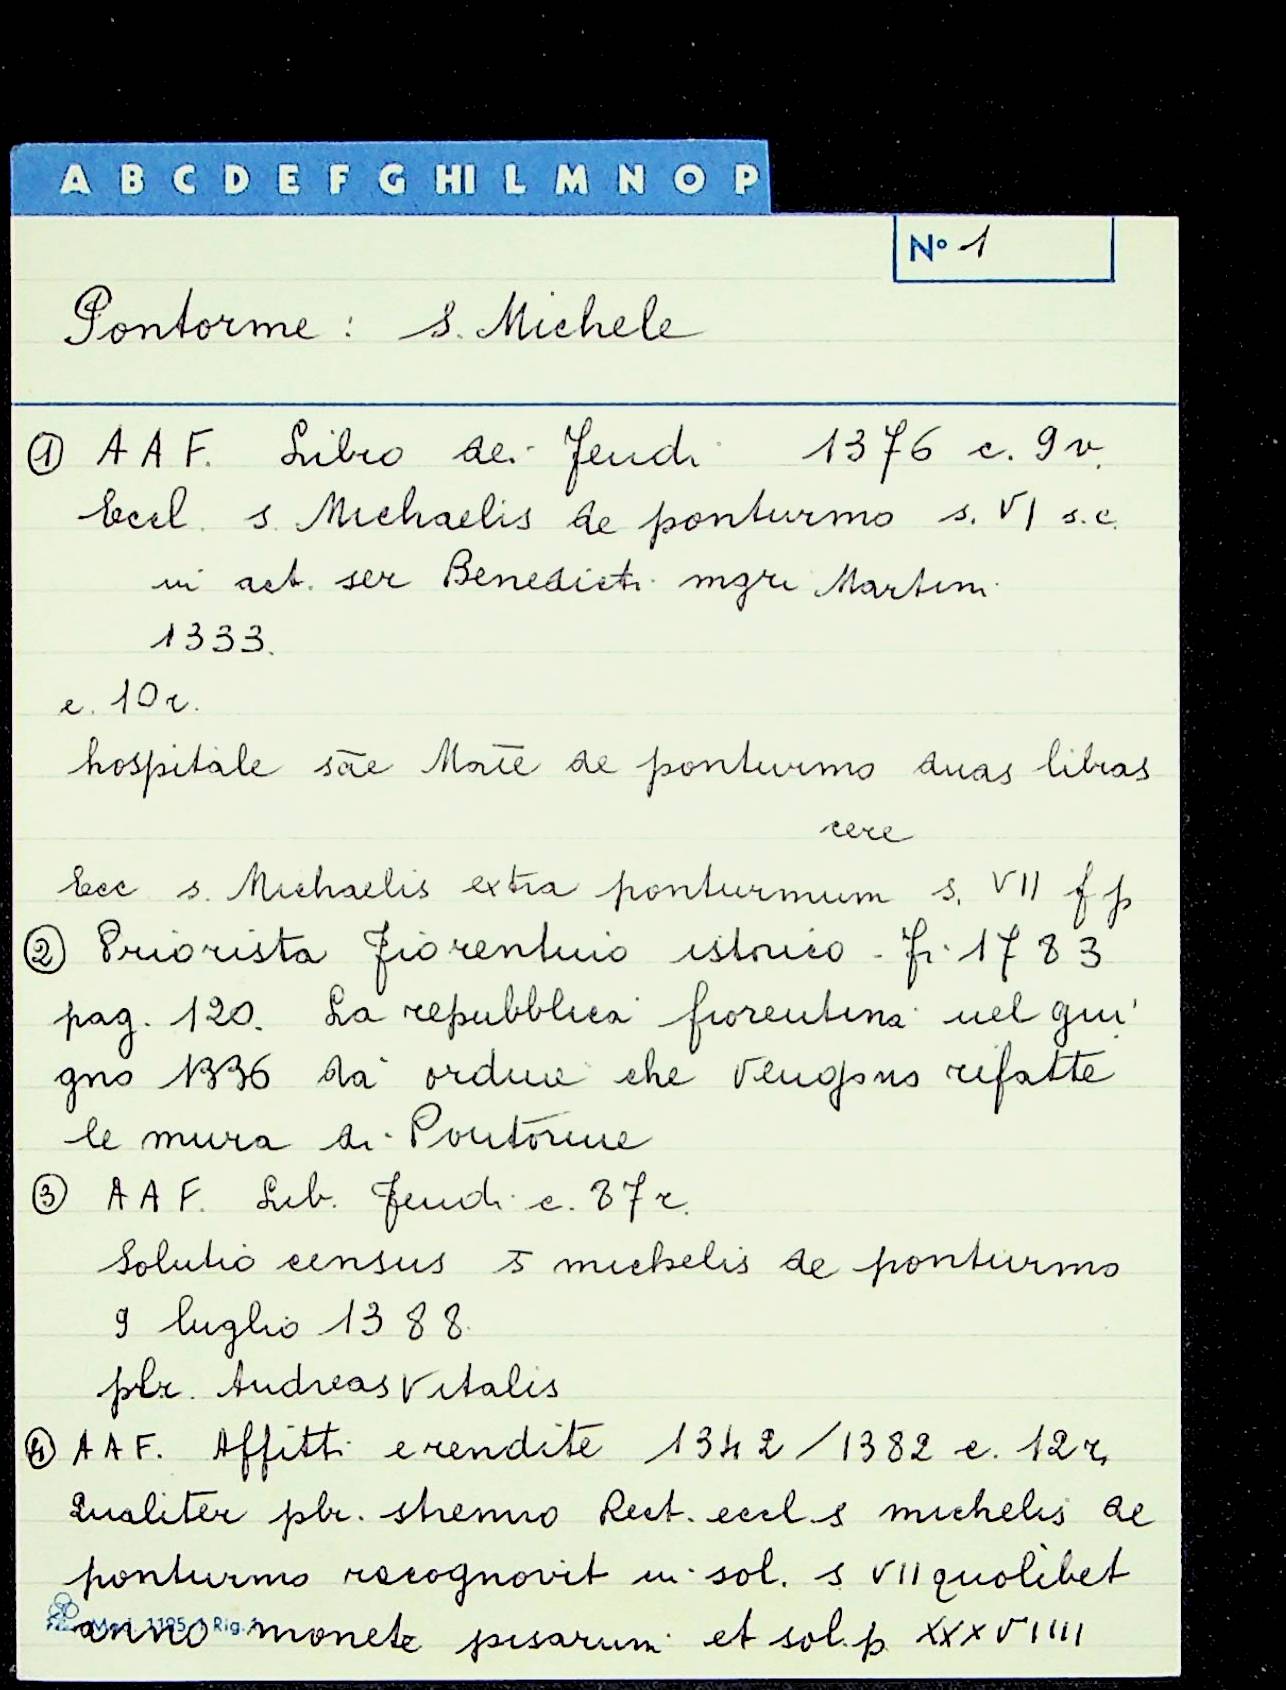 A B C D E F G HI L M N O P
N° 1
Pontorme : S. Michele
① A A F. Libro dei Feudi 1376 c. 9 v.
Eccl. s. Michaelis de ponturmo s. VI s.c.
in act. ser Benedicti mgri Martini
1333.
c. 10 r.
hospitale sāe Marīe de ponturmo duas libras
cere
Ecc s. Michaelis extra ponturmum s. VII f p
② Priorista Fiorentino istorico - Fi 1783
pag. 120. La repubblica fiorentina nel giu
gno 1336 dà ordine che vengono rifatte
le mura di Pontorme
③ A A F. Lib. Feudi c. 87 r.
Solutio census S michelis de ponturmo
9 luglio 1388
pbr. Andreas Vitalis
④ A A F. Affitti e rendite 1342/1382 c. 12 r.
Qualiter pbr. strenuo Rect. eccl. s michelis de
ponturmo racognovit in sol. s VII quolibet
anno monete pisarum et sol. p XXXVIIII